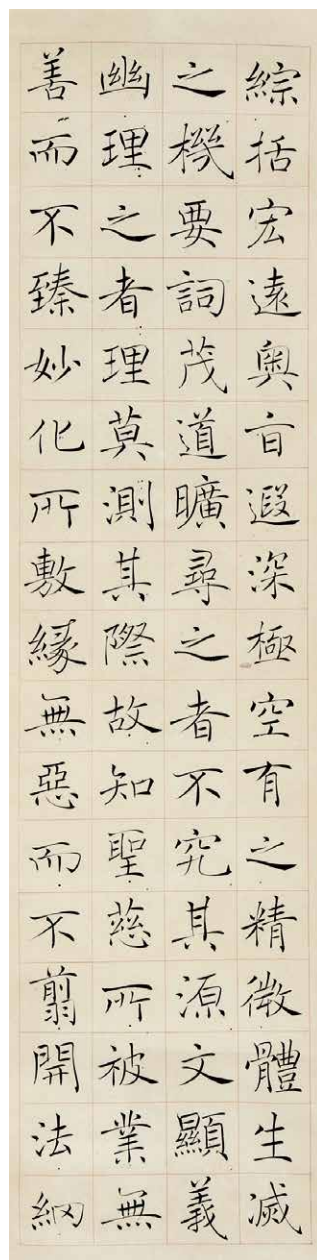 綜括宏遠奧旨遐深極空有之精微體生滅
之機要詞茂道曠尋之者不究其源文顯義
幽理之者理莫測其際故知聖慈所被業無
善而不臻妙化所敷緣無惡而不翦開法網